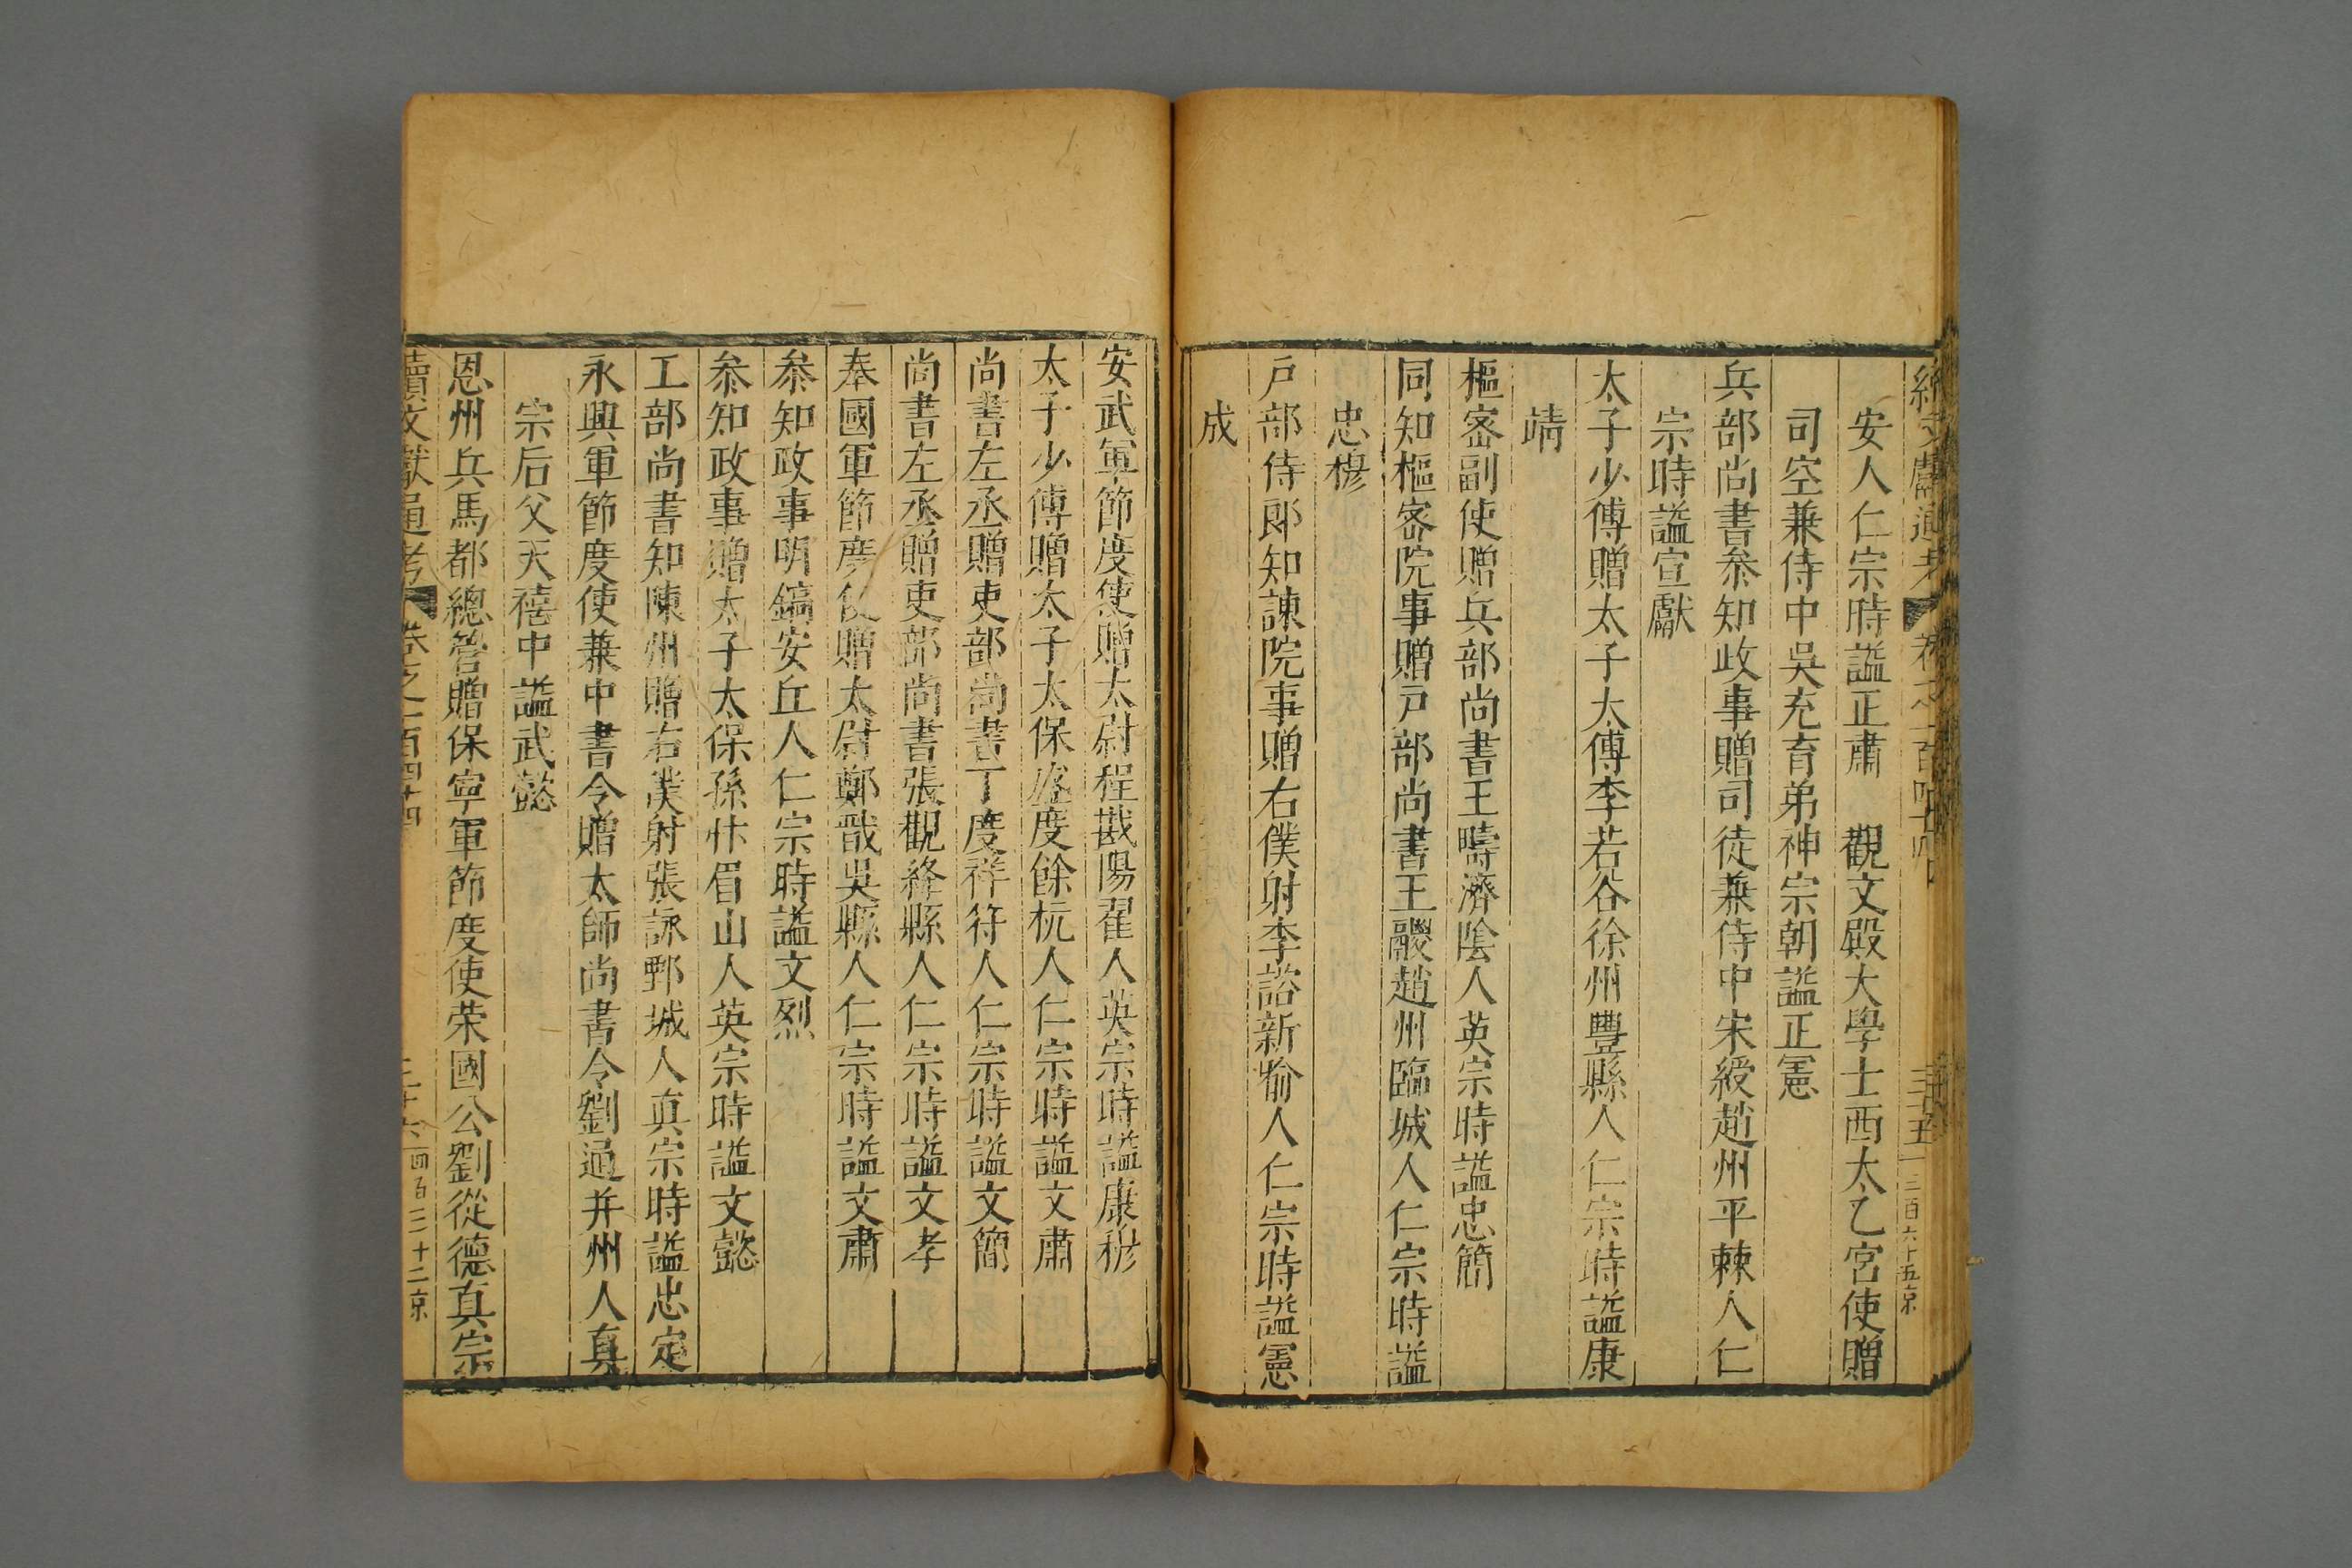 續文獻通考 卷之一百四十四 三十五 三百六十五京
安人仁宗時謚正肅 觀文殿大學士西太乙宮使贈
司空兼侍中吳充育弟神宗朝謚正憲
兵部尚書叅知政事贈司徒兼侍中宋綬趙州平棘人仁
宗時謚宣獻
太子少傅贈太子太傅李若谷徐州豐縣人仁宗時謚康
靖
樞密副使贈兵部尚書王疇濟陰人英宗時謚忠簡
同知樞密院事贈戶部尚書王鬷趙州臨城人仁宗時謚
忠穆
戶部侍郎知諫院事贈右僕射李諮新喻人仁宗時謚憲
成
安武軍節度使贈太尉程戡陽翟人英宗時謚康穆
太子少傅贈太子太保盛度餘杭人仁宗時謚文肅
尚書左丞贈吏部尚書丁度祥符人仁宗時謚文簡
尚書左丞贈吏部尚書張觀絳縣人仁宗時謚文孝
奉國軍節度使贈太尉鄭戩吳縣人仁宗時謚文肅
叅知政事明鎬安丘人仁宗時謚文烈
叅知政事贈太子太保孫抃眉山人英宗時謚文懿
工部尚書知陳州贈右僕射張詠鄄城人真宗時謚忠定
永興軍節度使兼中書令贈太師尚書令劉通并州人真
宗后父天禧中謚武懿
恩州兵馬都總管贈保寧軍節度使荣國公劉從德真宗
續文獻通考 卷之一百四十四 三十六 四百三十二京